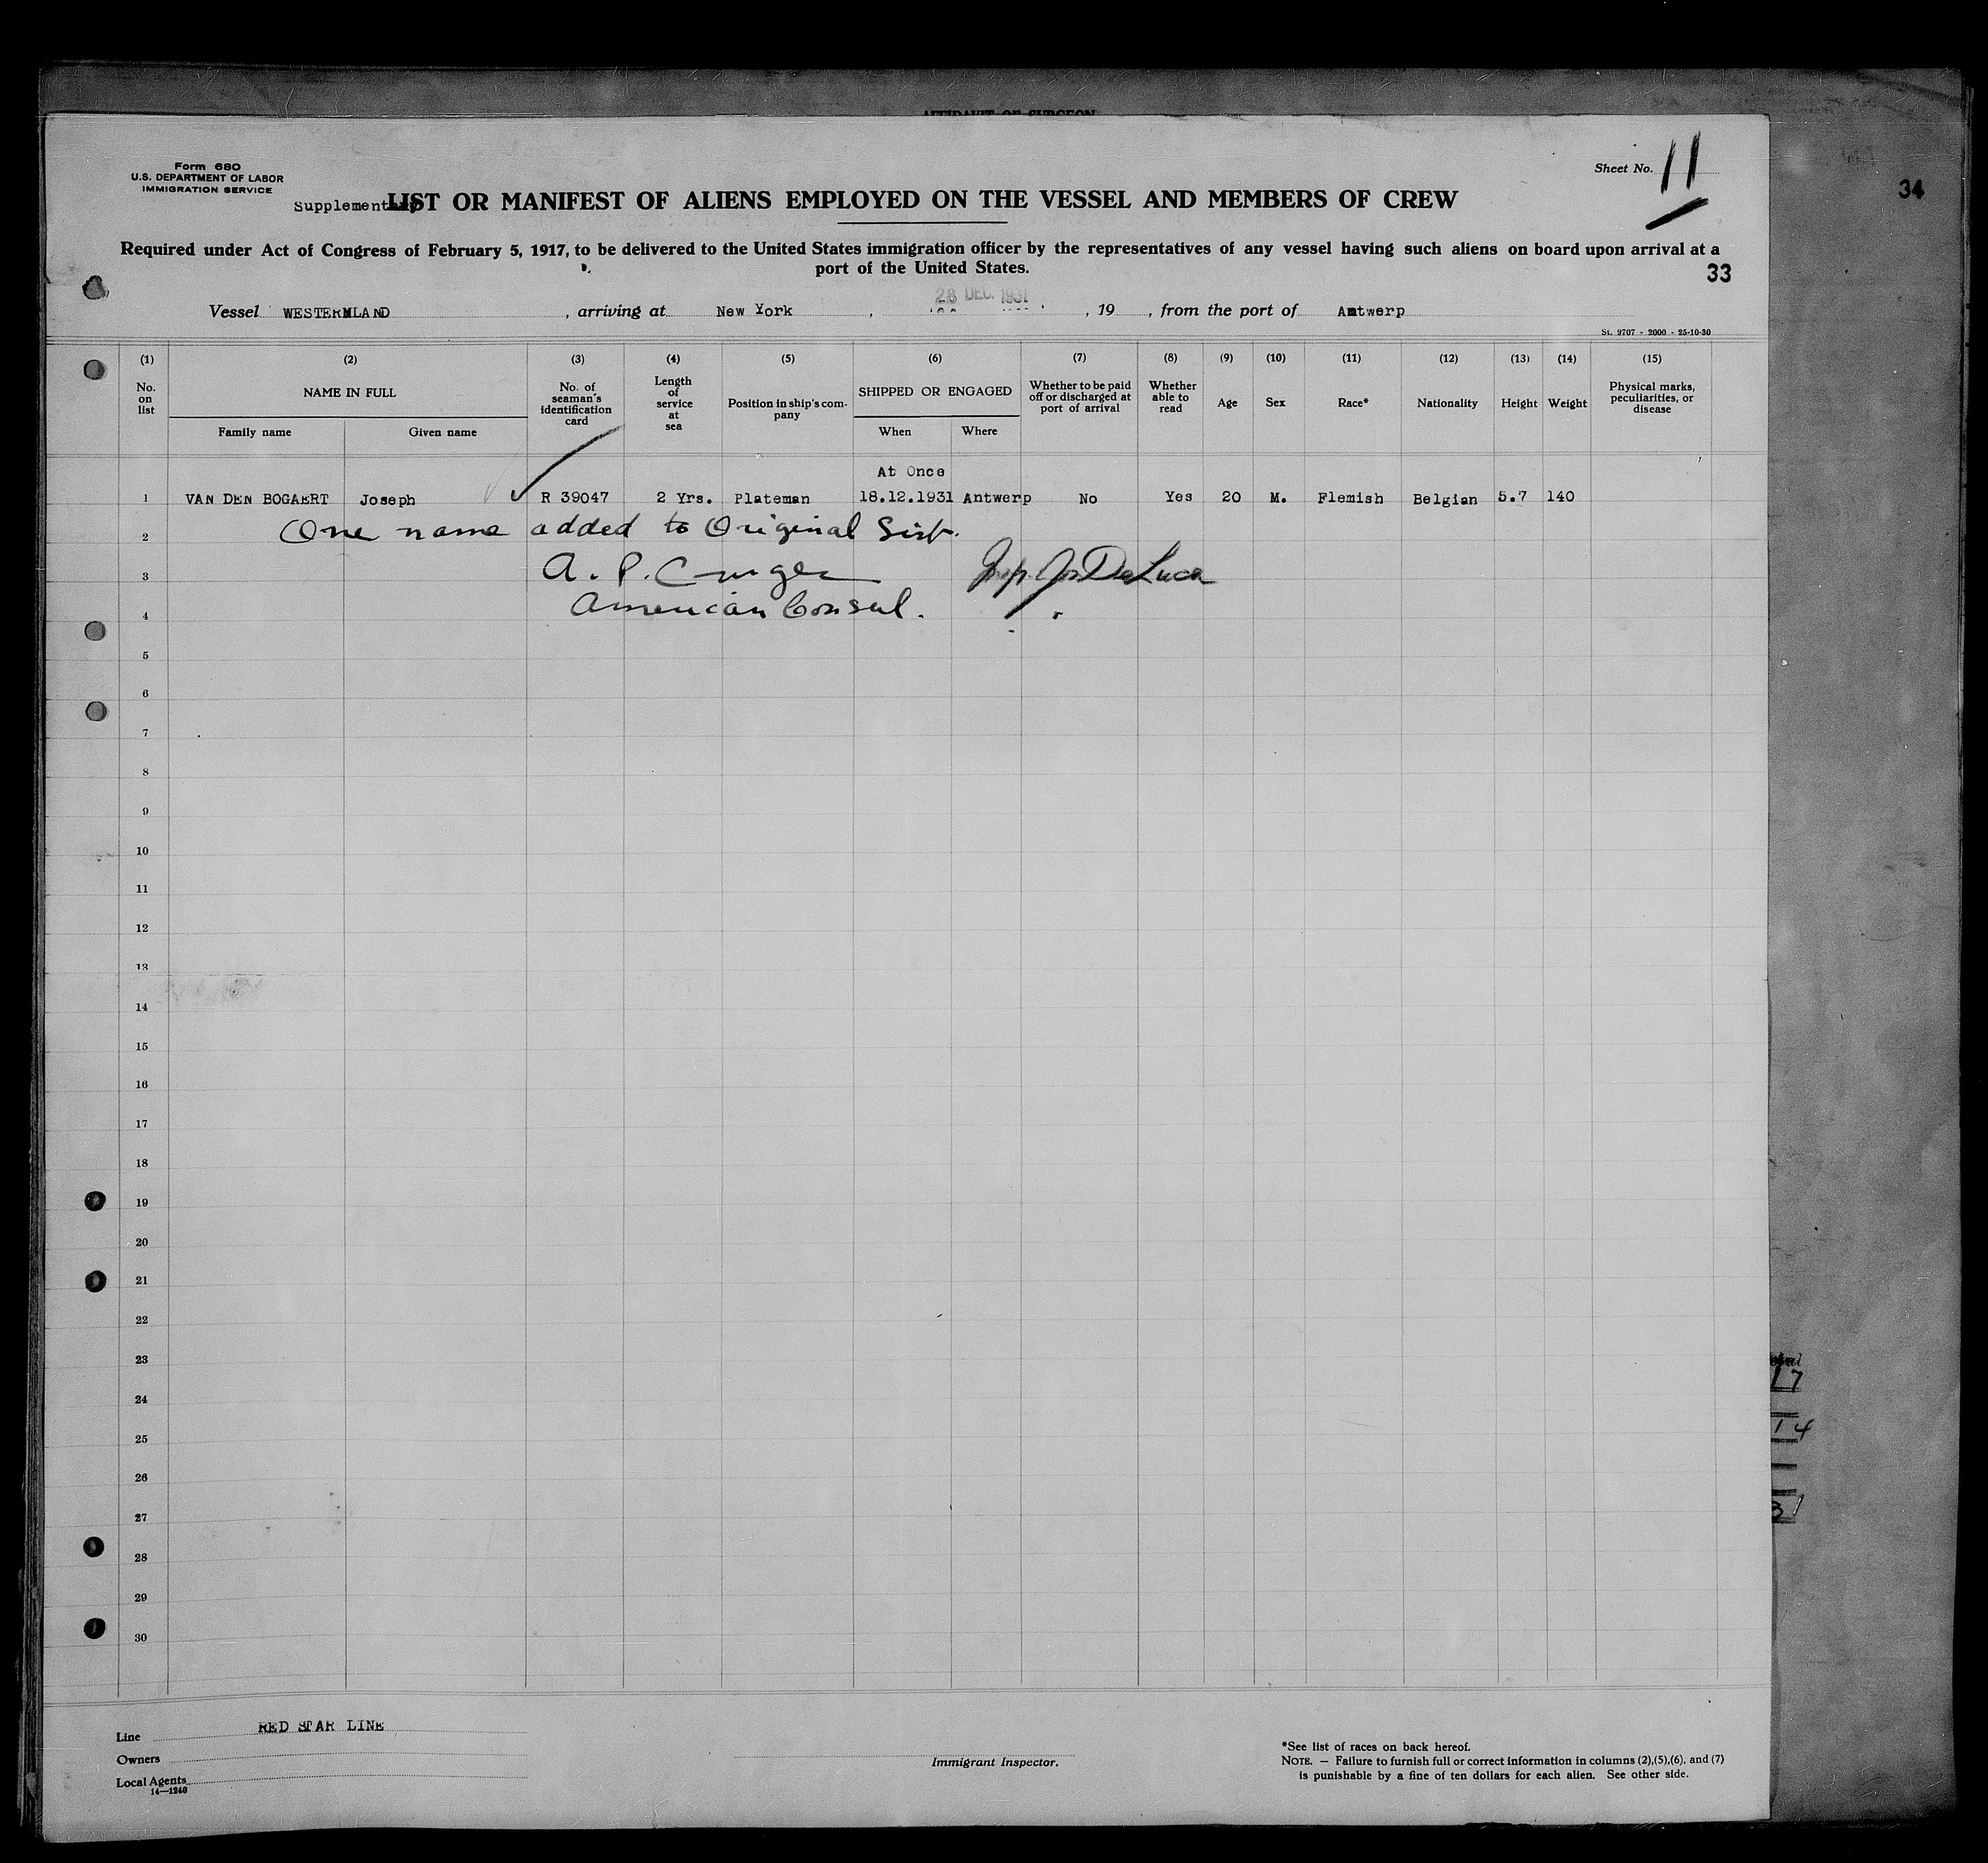 AFFIDAVIT OF SURGEON
Form 680
U.S. DEPARTMENT OF LABOR
IMMIGRATION SERVICE
Sheet No. 11
34
Supplementary LIST OR MANIFEST OF ALIENS EMPLOYED ON THE VESSEL AND MEMBERS OF CREW
Required under Act of Congress of February 5, 1917, to be delivered to the United States immigration officer by the representatives of any vessel having such aliens on board upon arrival at a
port of the United States.
33
28 DEC. 1931
Vessel WESTERNLAND , arriving at New York , , 19 , from the port of Antwerp
St. 9707 - 2000 - 25-10-30
(1) (2) (3) (4) (5) (6) (7) (8) (9) (10) (11) (12) (13) (14) (15)
No. on list NAME IN FULL No. of seaman's identification card Length of service at sea Position in ship's company SHIPPED OR ENGAGED Whether to be paid off or discharged at port of arrival Whether able to read Age Sex Race* Nationality Height Weight Physical marks, peculiarities, or disease
Family name Given name When Where
At Once
1 VAN DEN BOGAERT Joseph R 39047 2 Yrs. Plateman 18.12.1931 Antwerp No Yes 20 M. Flemish Belgian 5.7 140
2 One name added to Original List.
3 A. P. Cruger DeLuca
4 American Consul.
5
6
7
8
9
10
11
12
13
14
15
16
17
18
19
20
21
22
23
24
25
26
27
28
29
30
17
14
31
Line RED STAR LINE
Owners
Local Agents
14—1240
Immigrant Inspector.
*See list of races on back hereof.
NOTE. — Failure to furnish full or correct information in columns (2),(5),(6), and (7)
is punishable by a fine of ten dollars for each alien. See other side.